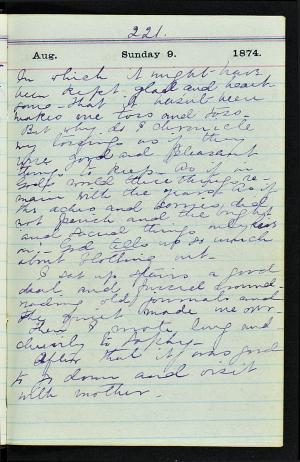 221.
Aug. Sunday 9. 1874.
In which it might have
been kept glad and heart
some - that it hasn't been
makes me toss and toss.
But why do I chronicle
my tossings as if they
were good and pleasant
things to keep. As if in
God's world these things re-
main with the years. As if
the aches and worries, did
not perish and the bright
and sound things only
on; - God tells us so much
about blotting out.
I set up stairs a good
deal and around
reading old journals and
the quiet made me
Then I wrote long and
cheerily to
After that it was good
to go down and visit
with mother.